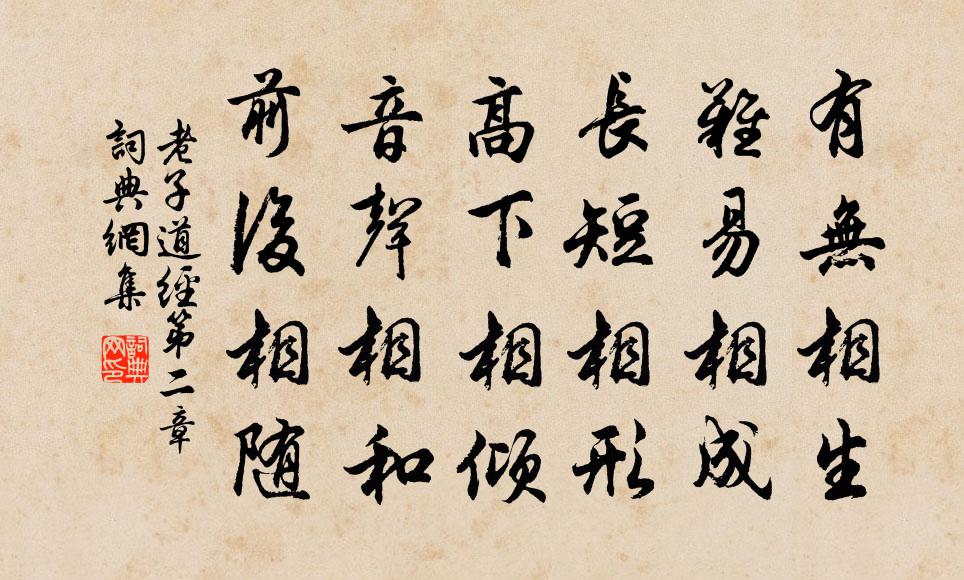 有無相生
難易相成
長短相形
高下相傾
音聲相和
前後相随
老子道經第二章
詞典網集
詞典网印